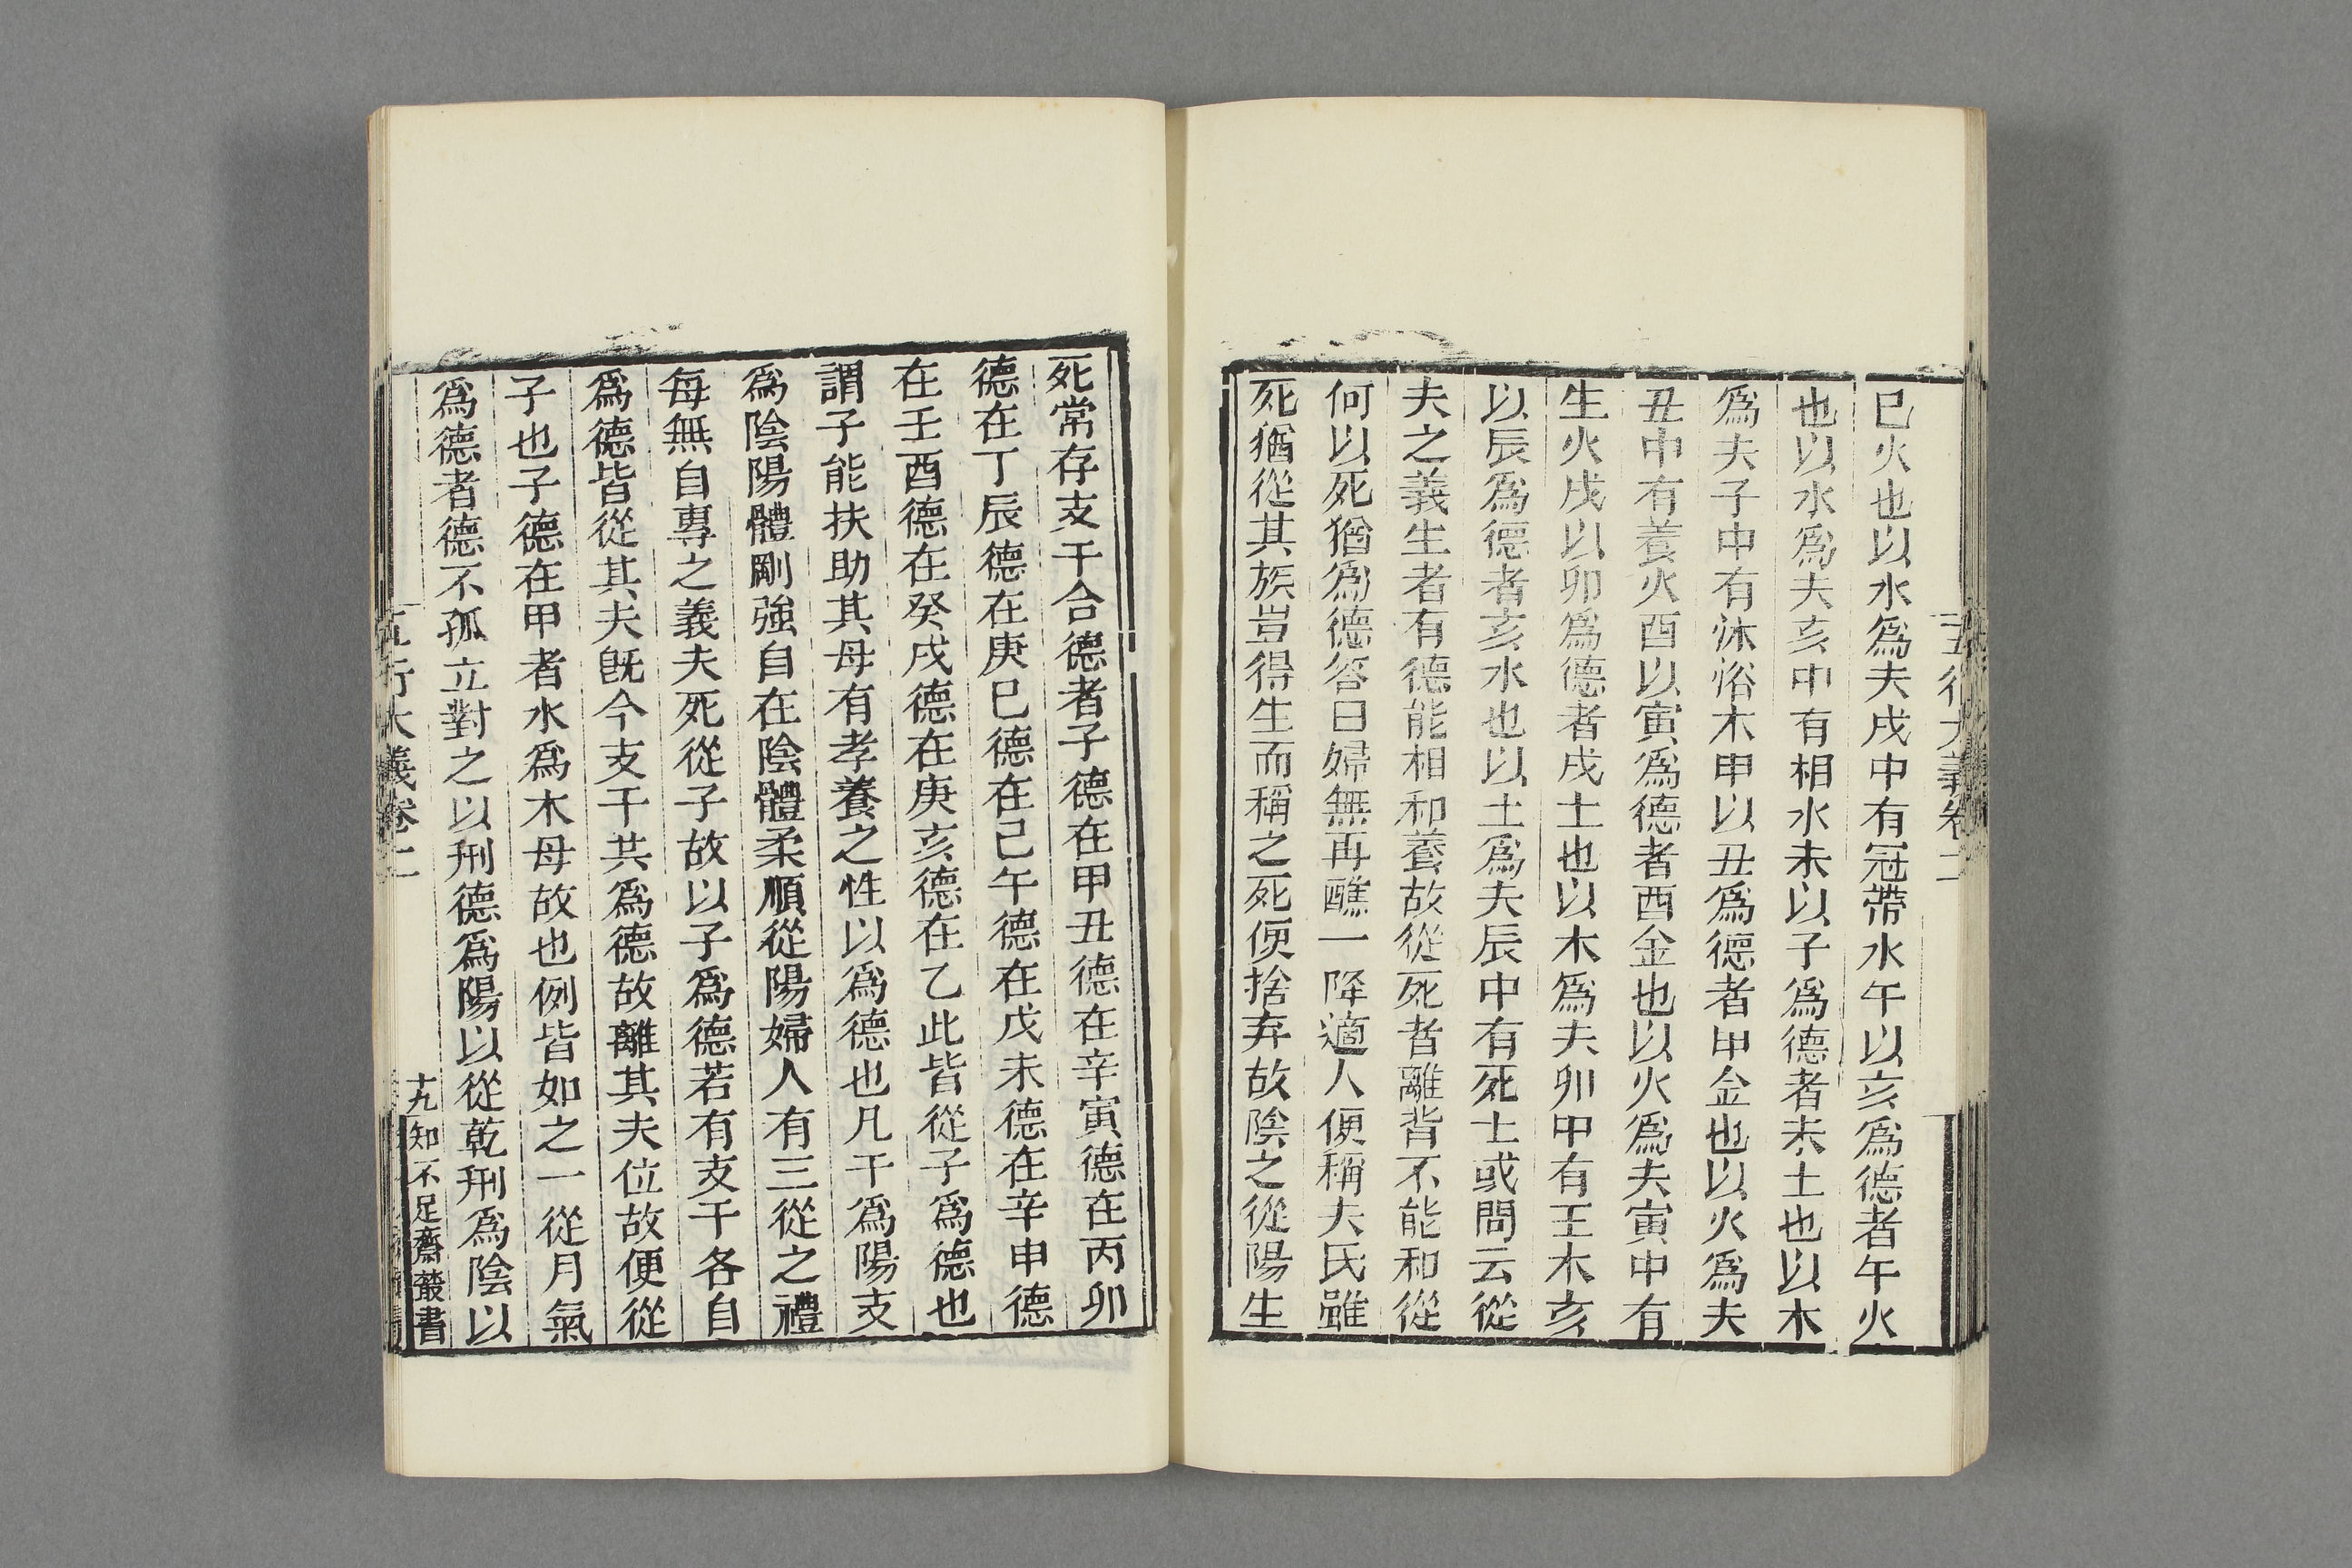 五行大義卷二
巳火也以水爲夫戌中有冠帶水午以亥爲德者午火
也以水爲夫亥中有相水未以子爲德者未土也以木
爲夫子中有沐浴木申以丑爲德者申金也以火爲夫
丑中有養火酉以寅爲德者酉金也以火爲夫寅中有
生火戌以卯爲德者戌土也以木爲夫卯中有王木亥
以辰爲德者亥水也以土爲夫辰中有死土或問云從
夫之義生者有德能相和養故從死者離背不能和從
何以死猶爲德答曰婦無再醮一降適人便稱夫氏雖
死猶從其族豈得生而稱之死便捨弃故陰之從陽生
死常存支干合德者子德在甲丑德在辛寅德在丙卯
德在丁辰德在庚巳德在己午德在戊未德在辛申德
在壬酉德在癸戌德在庚亥德在乙此皆從子爲德也
謂子能扶助其母有孝養之性以爲德也凡干爲陽支
爲陰陽體剛強自在陰體柔順從陽婦人有三從之禮
每無自專之義夫死從子故以子爲德若有支干各自
爲德皆從其夫旣今支干共爲德故離其夫位故便從
子也子德在甲者水爲木母故也例皆如之一從月氣
爲德者德不孤立對之以刑德爲陽以從乾刑爲陰以
五行大義卷二
十九知不足齋叢書